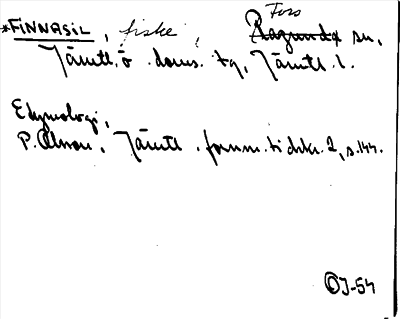 *FINNASIL, fiske, Fors Ragunda sn,
Jämtl. ö. doms. tg, Jämtl. l.
Etymologi,
P. Olsson, Jämtl. fornm. tidskr. 2, s. 144.
OJ-54